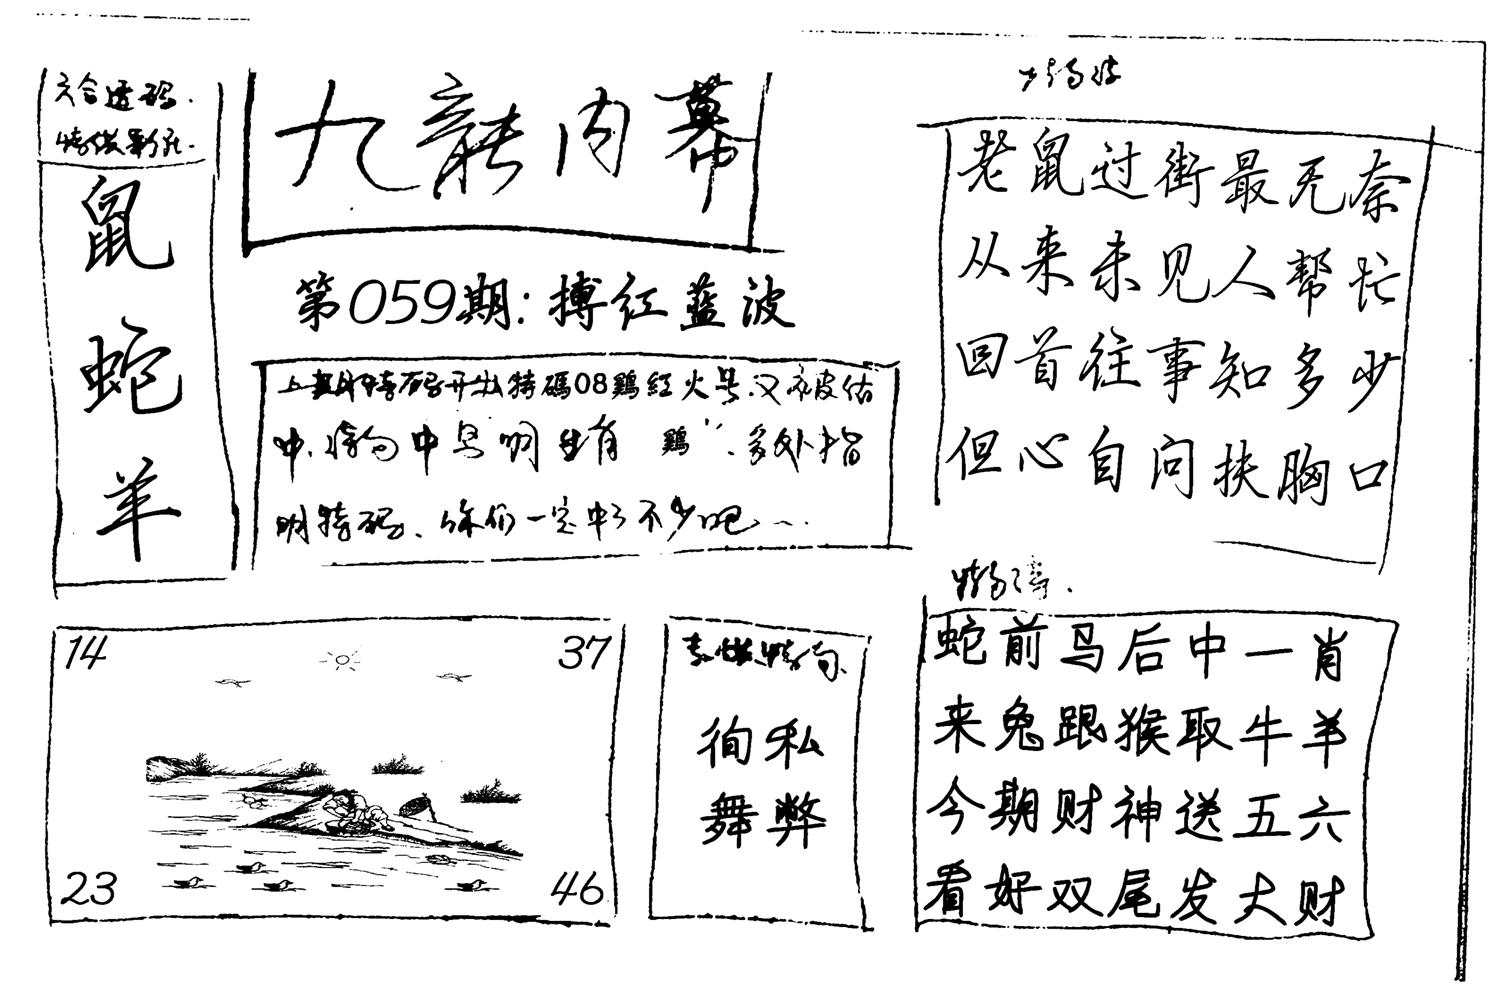 六合透码.
鼠
蛇
羊
九龍内幕
第059期:搏红蓝波
上期特码开出特碼08鷄紅火号.又被估
中.特句中号明生肖 鷄".多处指
明特码、你们一定中了不少吧
老鼠过街最无奈
从来未见人帮忙
回首往事知多少
但心自问扶胸口
14
37
23
46
徇私
舞弊
蛇前马后中一肖
来兔跟猴取牛羊
今期财神送五六
看好双尾发大财